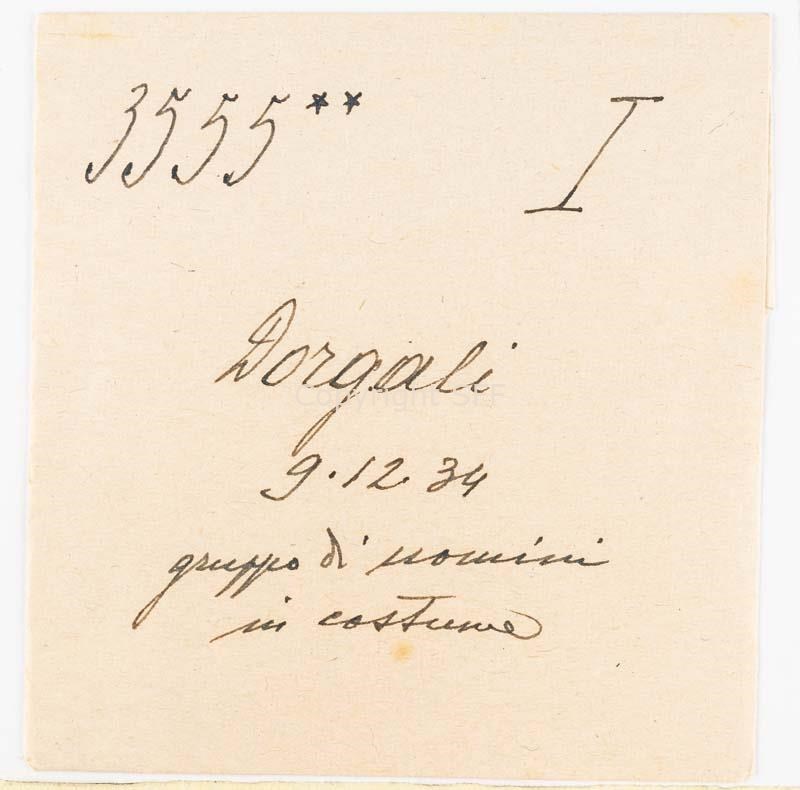 3555** I
Dorgali
Copyright SLF
9.12.34
gruppo di uomini
in costume